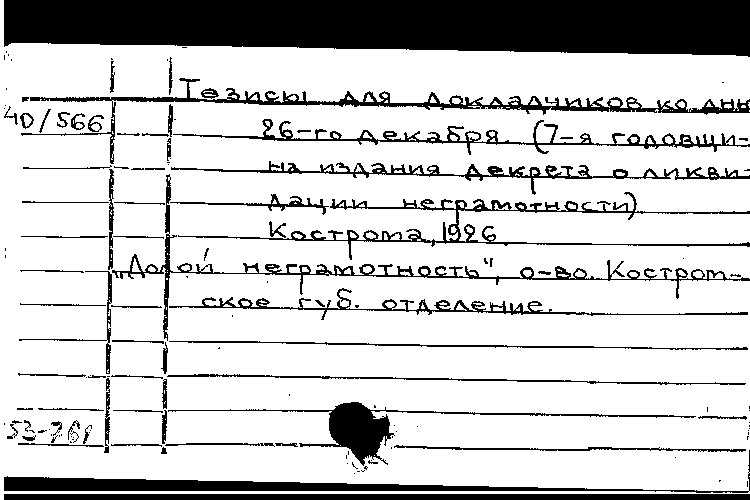 Тезисы для докладчиков ко дню
40/566
26-го декабря. (7-я годовщи-
на издания декрета о ликви-
дации неграмотности)
Кострома, 1926.
„Долой неграмотность", о-во. Костром-
ское губ. отделение.
53-761